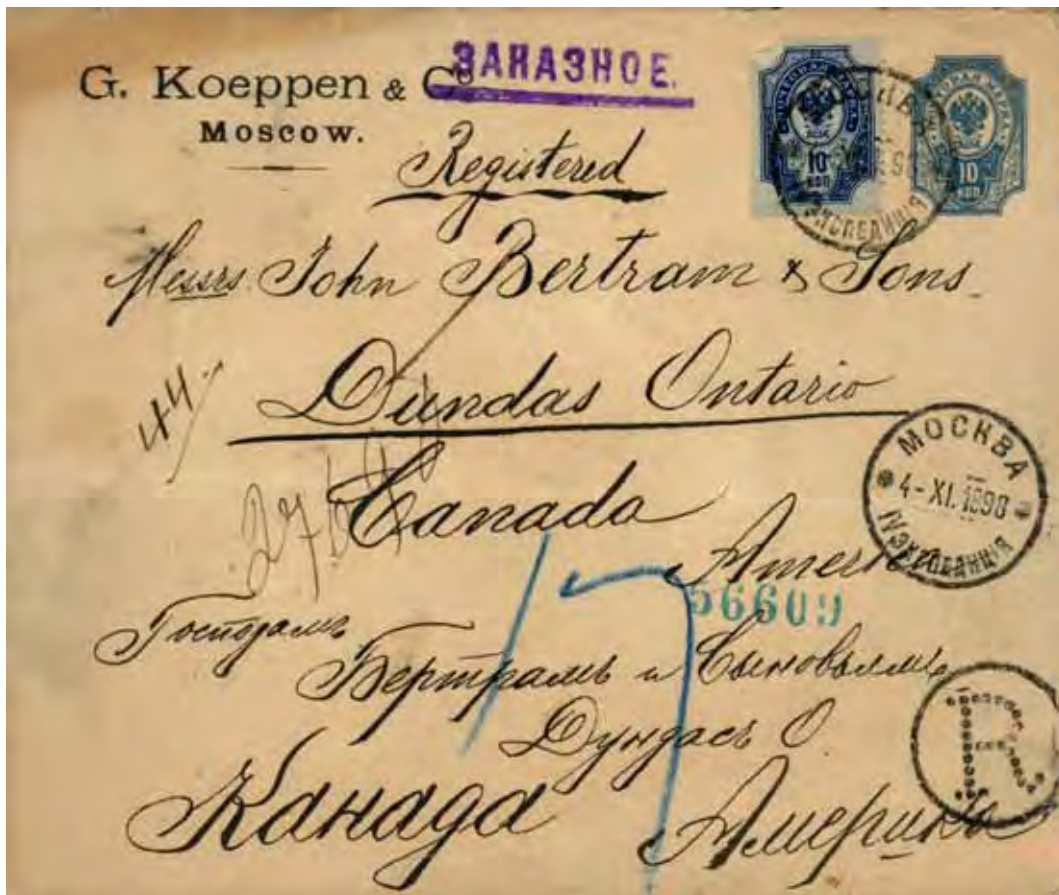 G. Koeppen & C
ЗАКАЗНОЕ.
Moscow.
Registered
10
КОП
10
КОП
Messrs John Bertram & Sons
44
Dundas Ontario
Canada
МОСКВА
4-XI.1898
ЭКСПЕДИЦІЯ
Ameri
56609
17
Господамъ
Бертрамъ и Сыновьямъ
Дундасъ О.
R
Канада Америка